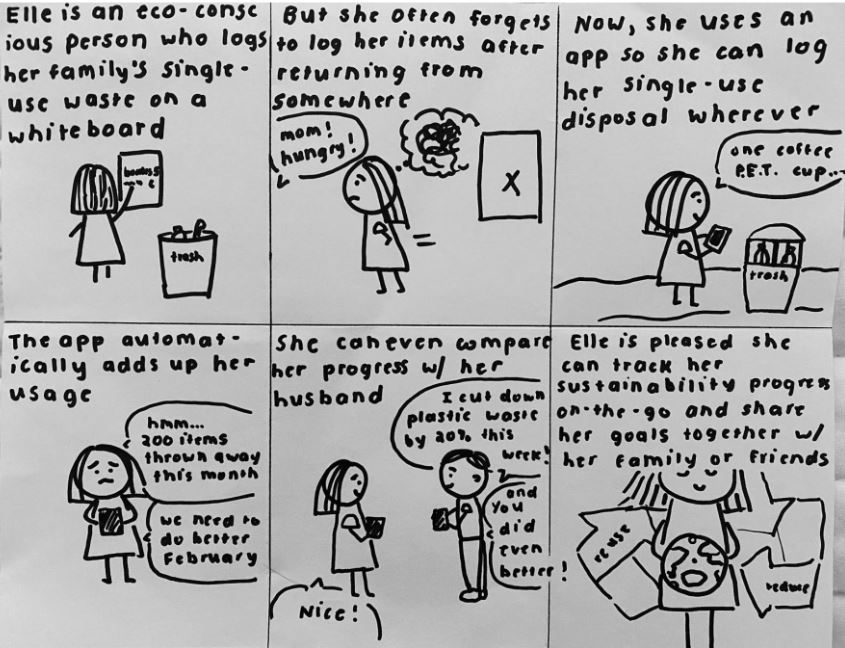 Elle is an eco-consc
ious person who logs
her family's single-
use waste on a
whiteboard
trash
But she often forgets
to log her items after
returning from
somewhere
mom!
hungry!
X
Now, she uses an
app so she can log
her single-use
disposal wherever
one coffee
P.E.T. cup...
trash
The app automat-
ically adds up her
usage
hmm...
200 items
thrown away
this month
we need to
do better
February
She can even compare
her progress w/ her
husband
I cut down
plastic waste
by 20% this
week!
and
you
did
even
better!
Nice!
Elle is pleased she
can track her
sustainability progress
on-the-go and share
her goals together w/
her family or friends
reuse
reduce